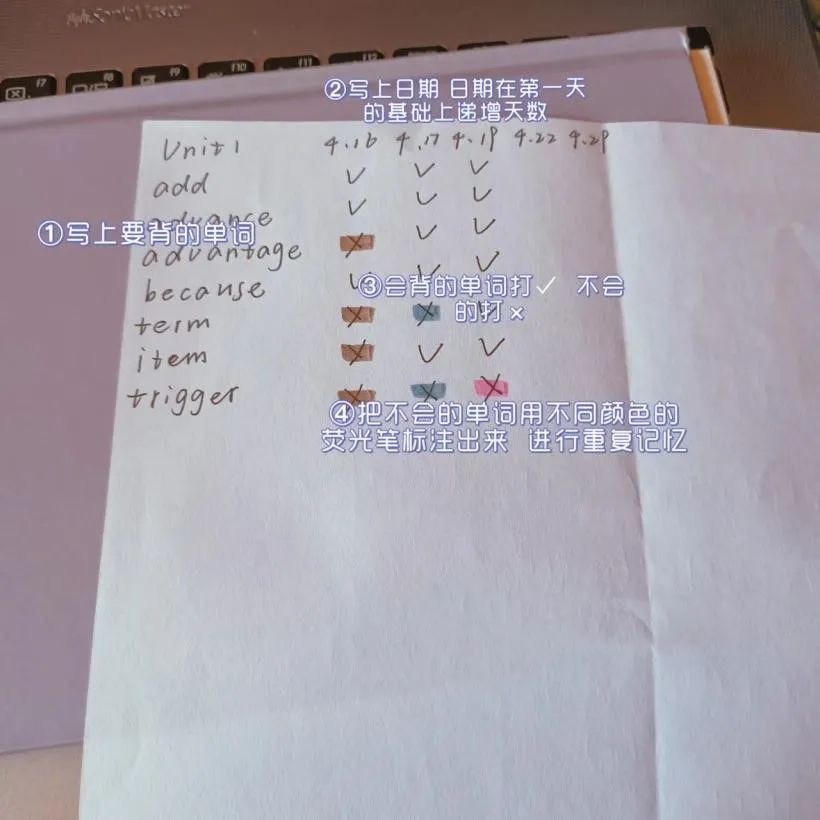 f7 f8 f9 f10 f11 f12
②写上日期 日期在第一天
的基础上递增天数
Unit1 4.16 4.17 4.19 4.22 4.29
add ✓ ✓ ✓
advance ✓ ✓ ✓
①写上要背的单词
advantage × ✓ ✓
because ✓ ✓ ✓
③会背的单词打✓ 不会
的打×
term × × ✓
item × ✓ ✓
trigger × × ×
④把不会的单词用不同颜色的
荧光笔标注出来 进行重复记忆